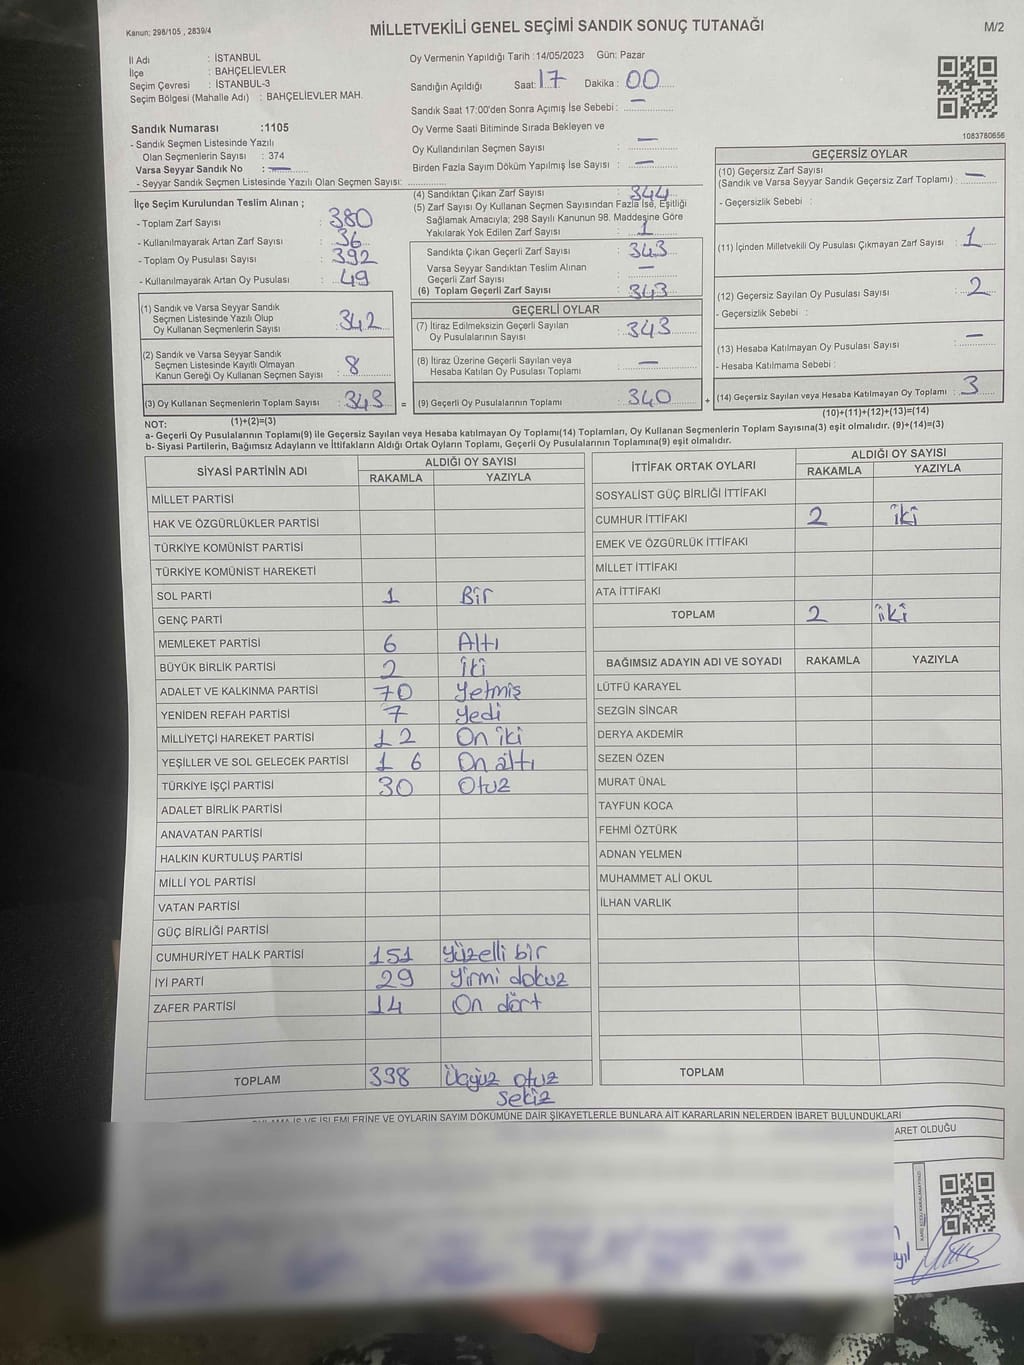 Kanun; 298/105 , 2839/4
MİLLETVEKİLİ GENEL SEÇİMİ SANDIK SONUÇ TUTANAĞI
M/2
İl Adı : İSTANBUL
İlçe : BAHÇELİEVLER
Seçim Çevresi : İSTANBUL-3
Seçim Bölgesi (Mahalle Adı) : BAHÇELİEVLER MAH.
Sandık Numarası :1105
- Sandık Seçmen Listesinde Yazılı
Olan Seçmenlerin Sayısı : 374
Varsa Seyyar Sandık No : —
- Seyyar Sandık Seçmen Listesinde Yazılı Olan Seçmen Sayısı:
Oy Vermenin Yapıldığı Tarih :14/05/2023 Gün: Pazar
Sandığın Açıldığı Saat: 17 Dakika : 00
Sandık Saat 17:00'den Sonra Açımış İse Sebebi : —
Oy Verme Saati Bitiminde Sırada Bekleyen ve
Oy Kullandırılan Seçmen Sayısı : —
Birden Fazla Sayım Döküm Yapılmış İse Sayısı : —
1083780656
İlçe Seçim Kurulundan Teslim Alınan ;
- Toplam Zarf Sayısı : 380
- Kullanılmayarak Artan Zarf Sayısı : 36
- Toplam Oy Pusulası Sayısı : 392
- Kullanılmayarak Artan Oy Pusulası : 49
(1) Sandık ve Varsa Seyyar Sandık
Seçmen Listesinde Yazılı Olup
Oy Kullanan Seçmenlerin Sayısı : 342
(2) Sandık ve Varsa Seyyar Sandık
Seçmen Listesinde Kayıtlı Olmayan
Kanun Gereği Oy Kullanan Seçmen Sayısı : 8
(3) Oy Kullanan Seçmenlerin Toplam Sayısı : 343 =
(1)+(2)=(3)
(4) Sandıktan Çıkan Zarf Sayısı : 344
(5) Zarf Sayısı Oy Kullanan Seçmen Sayısından Fazla İse, Eşitliği
Sağlamak Amacıyla; 298 Sayılı Kanunun 98. Maddesine Göre
Yakılarak Yok Edilen Zarf Sayısı : 1
Sandıkta Çıkan Geçerli Zarf Sayısı : 343
Varsa Seyyar Sandıktan Teslim Alınan
Geçerli Zarf Sayısı : —
(6) Toplam Geçerli Zarf Sayısı : 343
GEÇERLİ OYLAR
(7) İtiraz Edilmeksizin Geçerli Sayılan
Oy Pusulalarının Sayısı : 343
(8) İtiraz Üzerine Geçerli Sayılan veya
Hesaba Katılan Oy Pusulası Toplamı : —
(9) Geçerli Oy Pusulalarının Toplamı : 340 +
GEÇERSİZ OYLAR
(10) Geçersiz Zarf Sayısı
(Sandık ve Varsa Seyyar Sandık Geçersiz Zarf Toplamı) : —
- Geçersizlik Sebebi :
(11) İçinden Milletvekili Oy Pusulası Çıkmayan Zarf Sayısı : 1
(12) Geçersiz Sayılan Oy Pusulası Sayısı : 2
- Geçersizlik Sebebi :
(13) Hesaba Katılmayan Oy Pusulası Sayısı : —
- Hesaba Katılmama Sebebi :
(14) Geçersiz Sayılan veya Hesaba Katılmayan Oy Toplamı : 3
(10)+(11)+(12)+(13)=(14)
NOT:
a- Geçerli Oy Pusulalarının Toplamı(9) ile Geçersiz Sayılan veya Hesaba katılmayan Oy Toplamı(14) Toplamları, Oy Kullanan Seçmenlerin Toplam Sayısına(3) eşit olmalıdır. (9)+(14)=(3)
b- Siyasi Partilerin, Bağımsız Adayların ve İttifakların Aldığı Ortak Oyların Toplamı, Geçerli Oy Pusulalarının Toplamına(9) eşit olmalıdır.
SİYASİ PARTİNİN ADI ALDIĞI OY SAYISI
RAKAMLA YAZIYLA
MİLLET PARTİSİ
HAK VE ÖZGÜRLÜKLER PARTİSİ
TÜRKİYE KOMÜNİST PARTİSİ
TÜRKİYE KOMÜNİST HAREKETİ
SOL PARTİ 1 Bir
GENÇ PARTİ
MEMLEKET PARTİSİ 6 Altı
BÜYÜK BİRLİK PARTİSİ 2 İki
ADALET VE KALKINMA PARTİSİ 70 Yetmiş
YENİDEN REFAH PARTİSİ 7 Yedi
MİLLİYETÇİ HAREKET PARTİSİ 12 On iki
YEŞİLLER VE SOL GELECEK PARTİSİ 16 On altı
TÜRKİYE İŞÇİ PARTİSİ 30 Otuz
ADALET BİRLİK PARTİSİ
ANAVATAN PARTİSİ
HALKIN KURTULUŞ PARTİSİ
MİLLİ YOL PARTİSİ
VATAN PARTİSİ
GÜÇ BİRLİĞİ PARTİSİ
CUMHURİYET HALK PARTİSİ 151 Yüzelli bir
İYİ PARTİ 29 Yirmi dokuz
ZAFER PARTİSİ 14 On dört
TOPLAM 338 Üçyüz otuz
sekiz
İTTİFAK ORTAK OYLARI ALDIĞI OY SAYISI
RAKAMLA YAZIYLA
SOSYALİST GÜÇ BİRLİĞİ İTTİFAKI
CUMHUR İTTİFAKI 2 iki
EMEK VE ÖZGÜRLÜK İTTİFAKI
MİLLET İTTİFAKI
ATA İTTİFAKI
TOPLAM 2 iki
BAĞIMSIZ ADAYIN ADI VE SOYADI RAKAMLA YAZIYLA
LÜTFÜ KARAYEL
SEZGİN SİNCAR
DERYA AKDEMİR
SEZEN ÖZEN
MURAT ÜNAL
TAYFUN KOCA
FEHMİ ÖZTÜRK
ADNAN YELMEN
MUHAMMET ALİ OKUL
İLHAN VARLIK
TOPLAM
İŞ VE İŞLEMLERİNE VE OYLARIN SAYIM DÖKÜMÜNE DAİR ŞİKAYETLERLE BUNLARA AİT KARARLARIN NELERDEN İBARET BULUNDUKLARI
ARET OLDUĞU